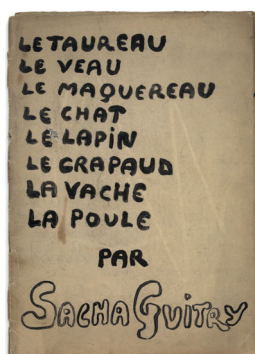 LE TAUREAU
LE VEAU
LE MAQUEREAU
LE CHAT
LE LAPIN
LE CRAPAUD
LA VACHE
LA POULE
PAR
SACHA GUITRY